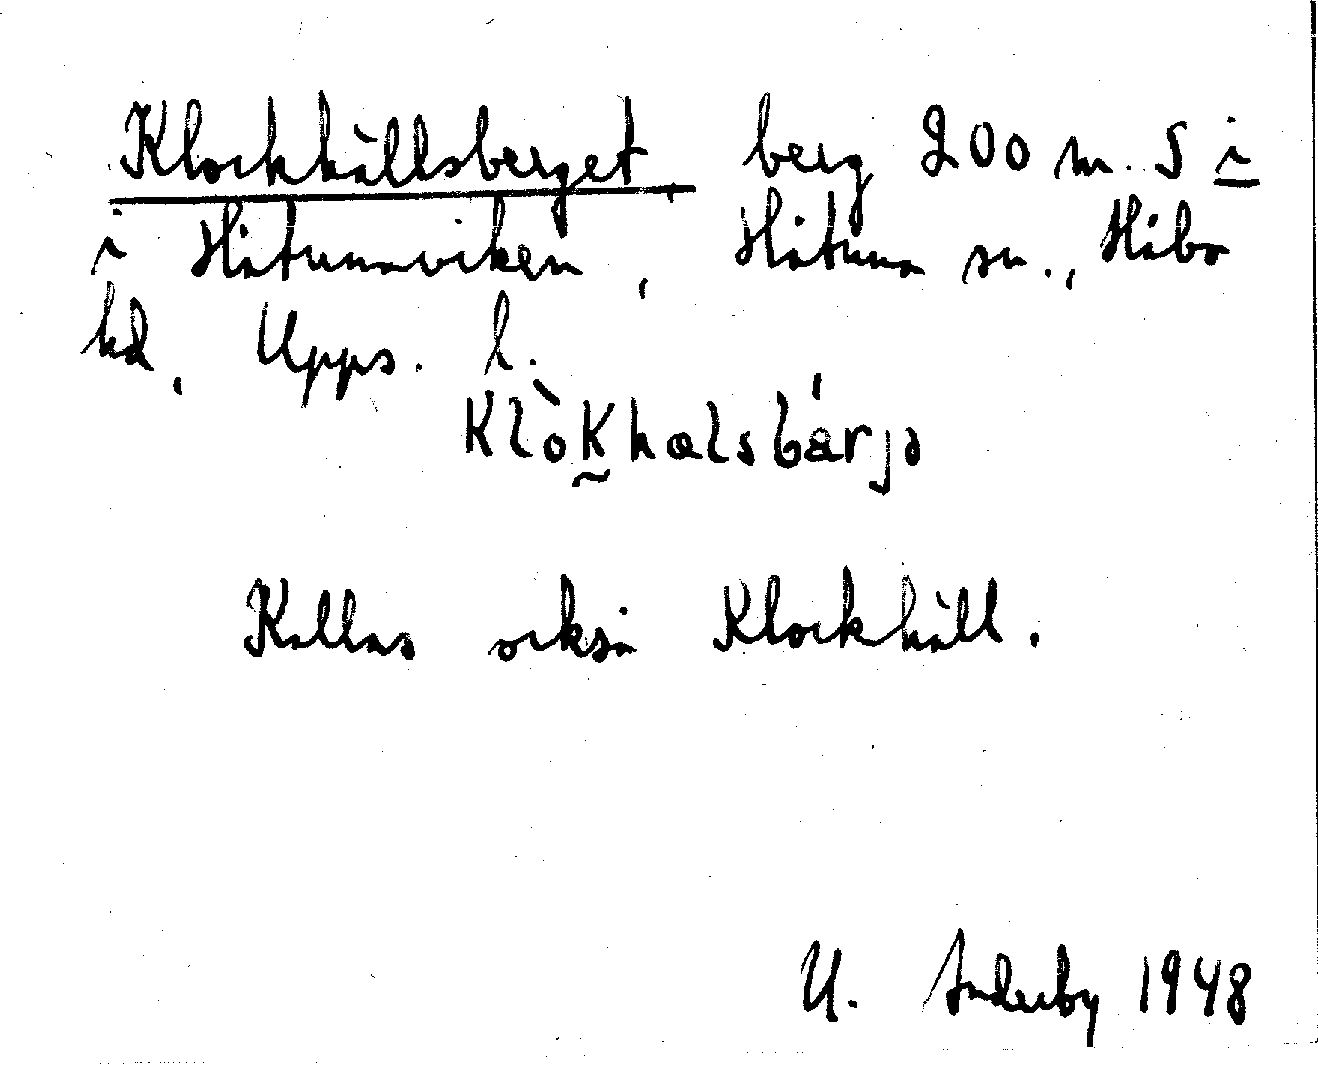 Klockhällsberget berg 200 m. S i
i Håtunaviken, Håtuna sn., Håbo
hd, Upps. l.
Klòkhælsbárjə
Kallas också Klockhäll.
U. 1948